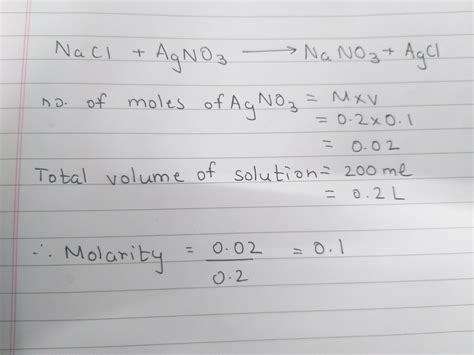 NaCl + AgNO3 ⟶ NaNO3 + AgCl
no. of moles of AgNO3 = M×V
= 0.2×0.1
= 0.02
Total volume of solution = 200 ml
= 0.2 L
∴ Molarity = 0.02/0.2 = 0.1